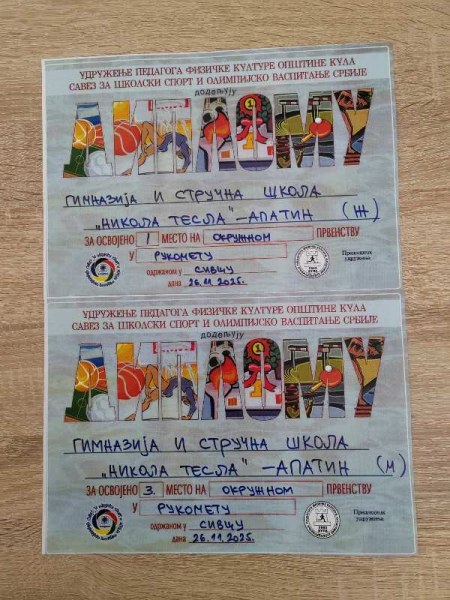 УДРУЖЕЊЕ ПЕДАГОГА ФИЗИЧКЕ КУЛТУРЕ ОПШТИНЕ КУЛА
САВЕЗ ЗА ШКОЛСКИ СПОРТ И ОЛИМПИЈСКО ВАСПИТАЊЕ СРБИЈЕ
додељују
ДИПЛОМУ
ГИМНАЗИЈА И СТРУЧНА ШКОЛА
„НИКОЛА ТЕСЛА" - АПАТИН (Ж)
ЗА ОСВОЈЕНО 1 МЕСТО НА ОКРУЖНОМ ПРВЕНСТВУ
У РУКОМЕТУ
одржаном у СИВЦУ
дана 26.11.2025.
Председник
удружења
УДРУЖЕЊЕ ПЕДАГОГА ФИЗИЧКЕ КУЛТУРЕ ОПШТИНЕ КУЛА
САВЕЗ ЗА ШКОЛСКИ СПОРТ И ОЛИМПИЈСКО ВАСПИТАЊЕ СРБИЈЕ
додељују
ДИПЛОМУ
ГИМНАЗИЈА И СТРУЧНА ШКОЛА
„НИКОЛА ТЕСЛА" - АПАТИН (М)
ЗА ОСВОЈЕНО 3. МЕСТО НА ОКРУЖНОМ ПРВЕНСТВУ
У РУКОМЕТУ
одржаном у СИВЦУ
дана 26.11.2025.
Председник
удружења